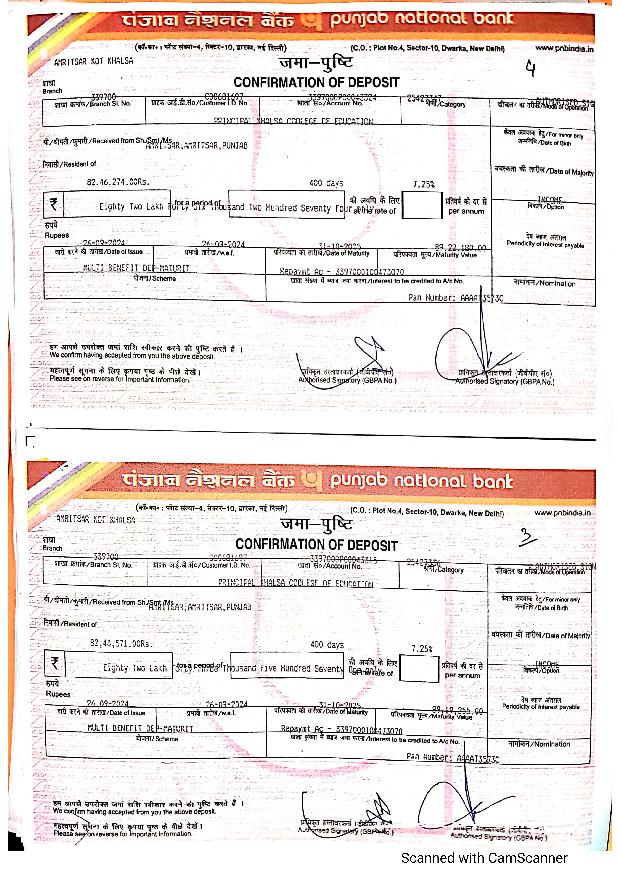 पंजाब नैशनल बैंक punjab national bank
(कॉ.का॰ : प्लॉट संख्या-4, सेक्टर-10, द्वारका, नई दिल्ली) (C.O. : Plot No.4, Sector-10, Dwarka, New Delhi) www.pnbindia.in
AMRITSAR KOT KHALSA जमा–पुष्टि 4
शाखा
Branch CONFIRMATION OF DEPOSIT
339700
शाखा क्रमांक/Branch Sl. No. ग्राहक आई.डी.सं०/Customer I.D. No. खाता सं०/Account No. श्रेणी/Category परिचालन का तरीका/Mode of Operation
PRINCIPAL KHALSA COOLEGE OF EDUCATION
केवल अवयस्क हेतु/For minor only
जन्मतिथि/Date of Birth
श्री/श्रीमती/कुमारी/Received from Sh./Smt./Ms.
AMRITSAR,AMRITSAR,PUNJAB
निवासी/Resident of वयस्कता की तारीख/Date of Majority
82,46,274.00Rs. 400 days 7.25%
₹ Eighty Two Lakh Forty Six Thousand Two Hundred Seventy Four only for a period of की अवधि के लिए at the rate of प्रतिवर्ष की दर से per annum
INCOME
विकल्प/Option
रुपये
Rupees
देय ब्याज अंतराल
Periodicity of Interest payable
26-09-2024 26-09-2024 31-10-2025 89,22,180.00
जारी करने की तारीख/Date of Issue प्रभावी तारीख/w.e.f. परिपक्वता की तारीख/Date of Maturity परिपक्वता मूल्य/Maturity Value
MULTI BENEFIT DEP-MATURIT Repaymt Ac - 3397000100473070
योजना/Scheme खाता संख्या में ब्याज जमा करना/Interest to be credited to A/c No. नामांकन/Nomination
Pan Number: AAAAT3573C
हम आपसे उपरोक्त जमा राशि स्वीकार करने की पुष्टि करते हैं ।
We confirm having accepted from you the above deposit.
महत्वपूर्ण सूचना के लिए कृपया पृष्ठ के पीछे देखें।
Please see on reverse for Important Information.
प्राधिकृत हस्ताक्षरकर्ता (जीबीपीए सं०) प्राधिकृत हस्ताक्षरकर्ता (जीबीपीए सं०)
Authorised Signatory (GBPA No.) Authorised Signatory (GBPA No.)
पंजाब नैशनल बैंक punjab national bank
(कॉ.का॰ : प्लॉट संख्या-4, सेक्टर-10, द्वारका, नई दिल्ली) (C.O. : Plot No.4, Sector-10, Dwarka, New Delhi) www.pnbindia.in
AMRITSAR KOT KHALSA जमा–पुष्टि 3
शाखा
Branch CONFIRMATION OF DEPOSIT
339700
शाखा क्रमांक/Branch Sl. No. ग्राहक आई.डी.सं०/Customer I.D. No. खाता सं०/Account No. श्रेणी/Category परिचालन का तरीका/Mode of Operation
PRINCIPAL KHALSA COOLEGE OF EDUCATION
केवल अवयस्क हेतु/For minor only
जन्मतिथि/Date of Birth
श्री/श्रीमती/कुमारी/Received from Sh./Smt./Ms.
AMRITSAR,AMRITSAR,PUNJAB
निवासी/Resident of वयस्कता की तारीख/Date of Majority
82,43,571.00Rs. 400 days 7.25%
₹ Eighty Two Lakh Forty Three Thousand Five Hundred Seventy One only for a period of की अवधि के लिए at the rate of प्रतिवर्ष की दर से per annum
INCOME
विकल्प/Option
रुपये
Rupees
देय ब्याज अंतराल
Periodicity of Interest payable
26-09-2024 26-09-2024 31-10-2025 89,19,255.00
जारी करने की तारीख/Date of Issue प्रभावी तारीख/w.e.f. परिपक्वता की तारीख/Date of Maturity परिपक्वता मूल्य/Maturity Value
MULTI BENEFIT DEP-MATURIT Repaymt Ac - 3397000100473070
योजना/Scheme खाता संख्या में ब्याज जमा करना/Interest to be credited to A/c No. नामांकन/Nomination
Pan Number: AAAAT3573C
हम आपसे उपरोक्त जमा राशि स्वीकार करने की पुष्टि करते हैं ।
We confirm having accepted from you the above deposit.
महत्वपूर्ण सूचना के लिए कृपया पृष्ठ के पीछे देखें।
Please see on reverse for Important Information.
प्राधिकृत हस्ताक्षरकर्ता (जीबीपीए सं०) प्राधिकृत हस्ताक्षरकर्ता (जीबीपीए सं०)
Authorised Signatory (GBPA No.) Authorised Signatory (GBPA No.)
Scanned with CamScanner